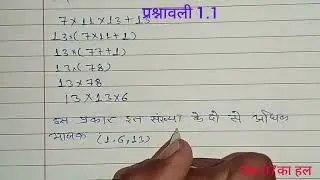 प्रश्नावली 1.1
7×11×13+13
13×(7×11+1)
13×(77+1)
13×(78)
13×78
13×13×6
इस प्रकार इस संख्या के दो से अधिक
भाजक (1,6,13)
का हल